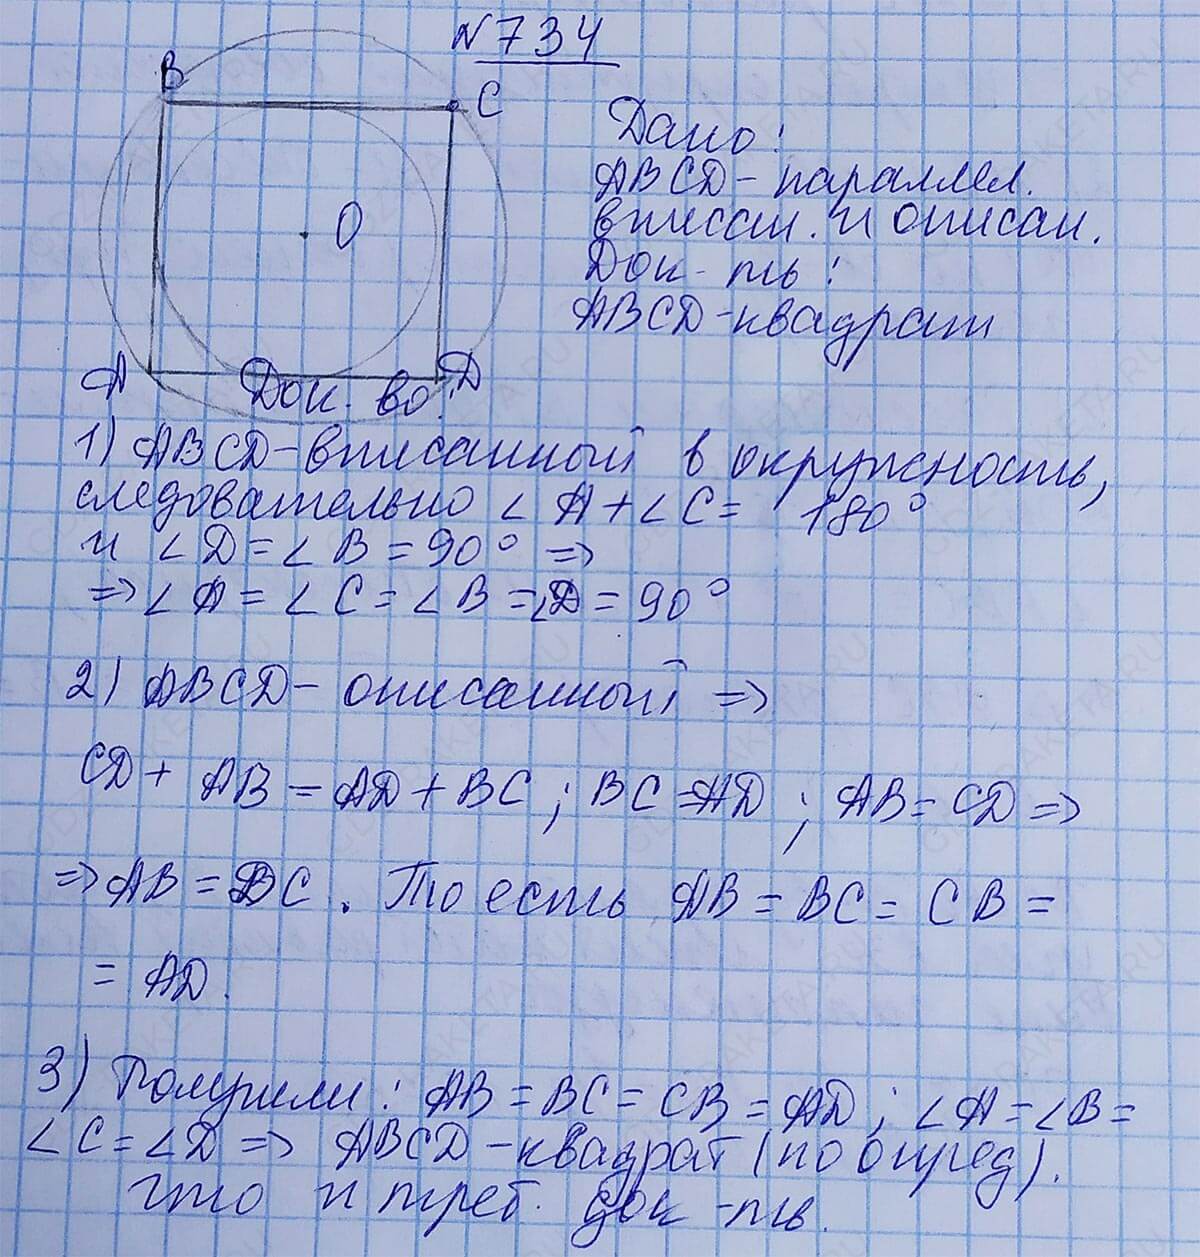 №734
B
C
O
A
D
Дано:
ABCD-параллел.
вписан. и описан.
Док-ть:
ABCD-квадрат
Док-во:
1) ABCD-вписанный в окружность,
следовательно ∠A+∠C= 180°
и ∠D=∠B=90° =>
=> ∠A=∠C=∠B=∠D=90°
2) ABCD-описанный =>
CD+AB=AD+BC; BC=AD; AB=CD =>
=> AB=BC. То есть AB=BC=CB=
=AD.
3) Получили: AB=BC=CB=AD; ∠A=∠B=
∠C=∠D => ABCD-квадрат (по опред).
что и треб. док-ть.